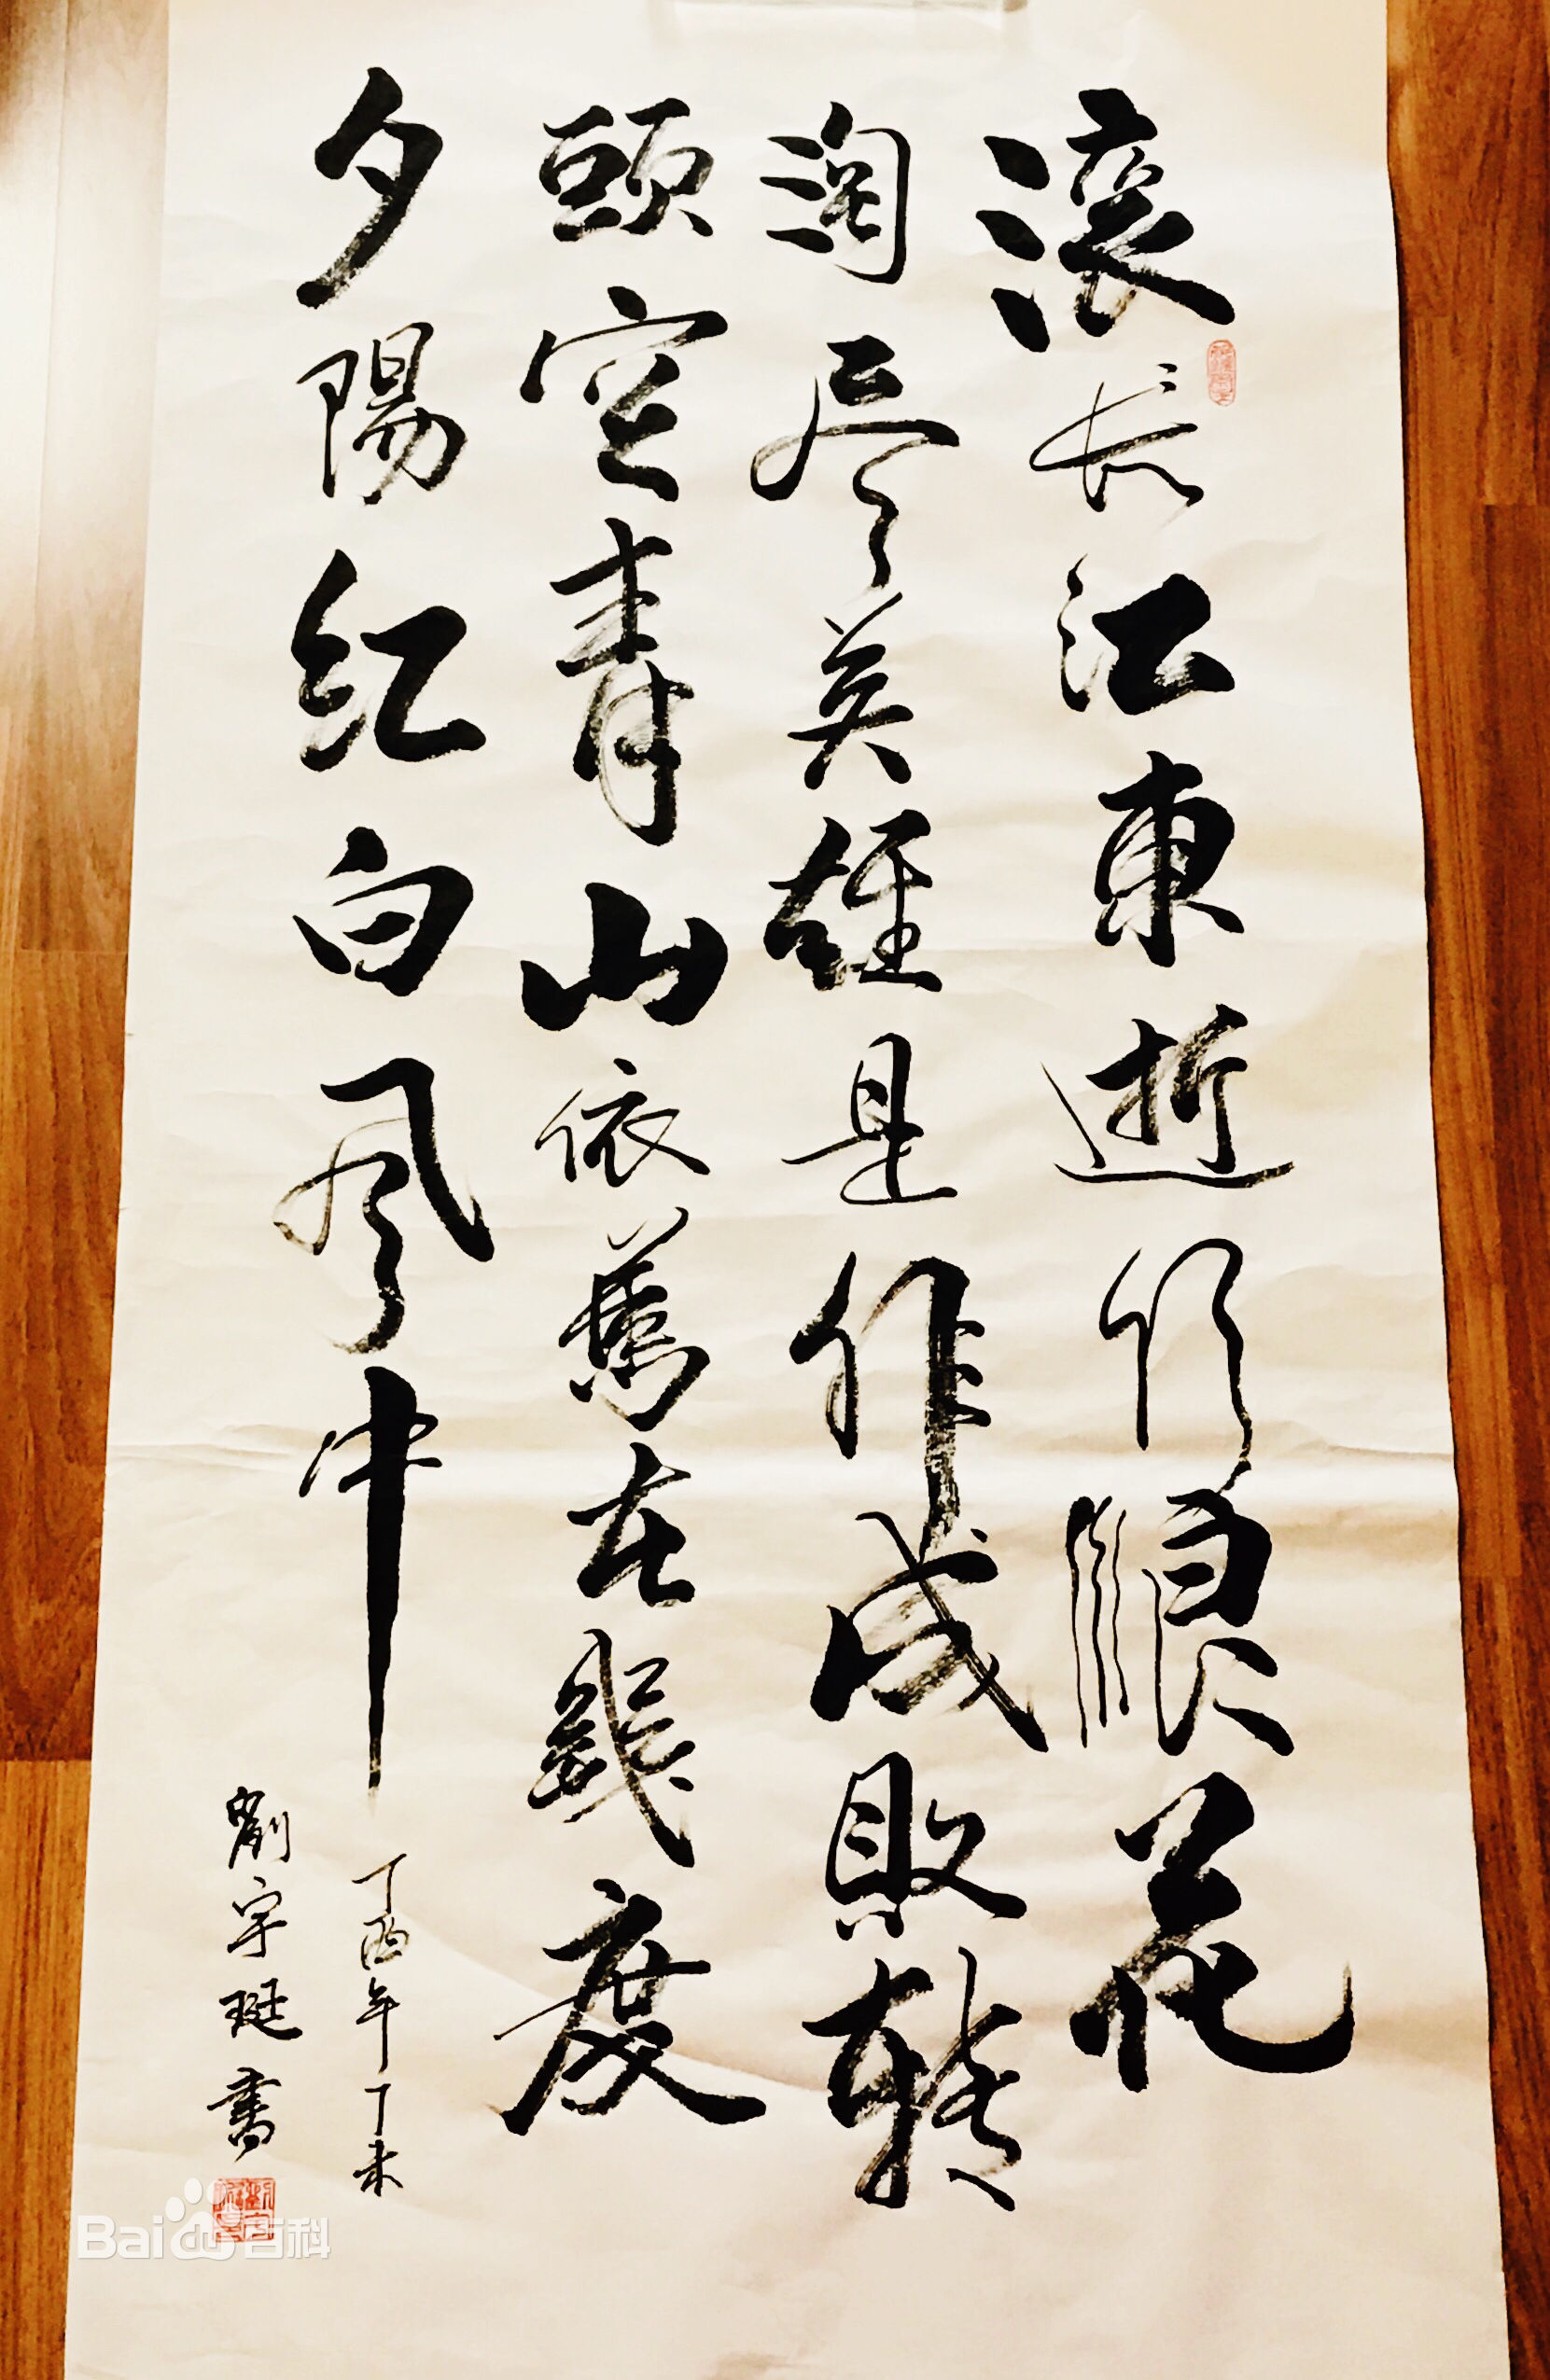 滚长江東逝水浪花
淘尽英雄是非成敗轉
頭空青山依舊在幾度
夕陽红白风中
丁酉年丁未
劉宇珽書
Bai百科